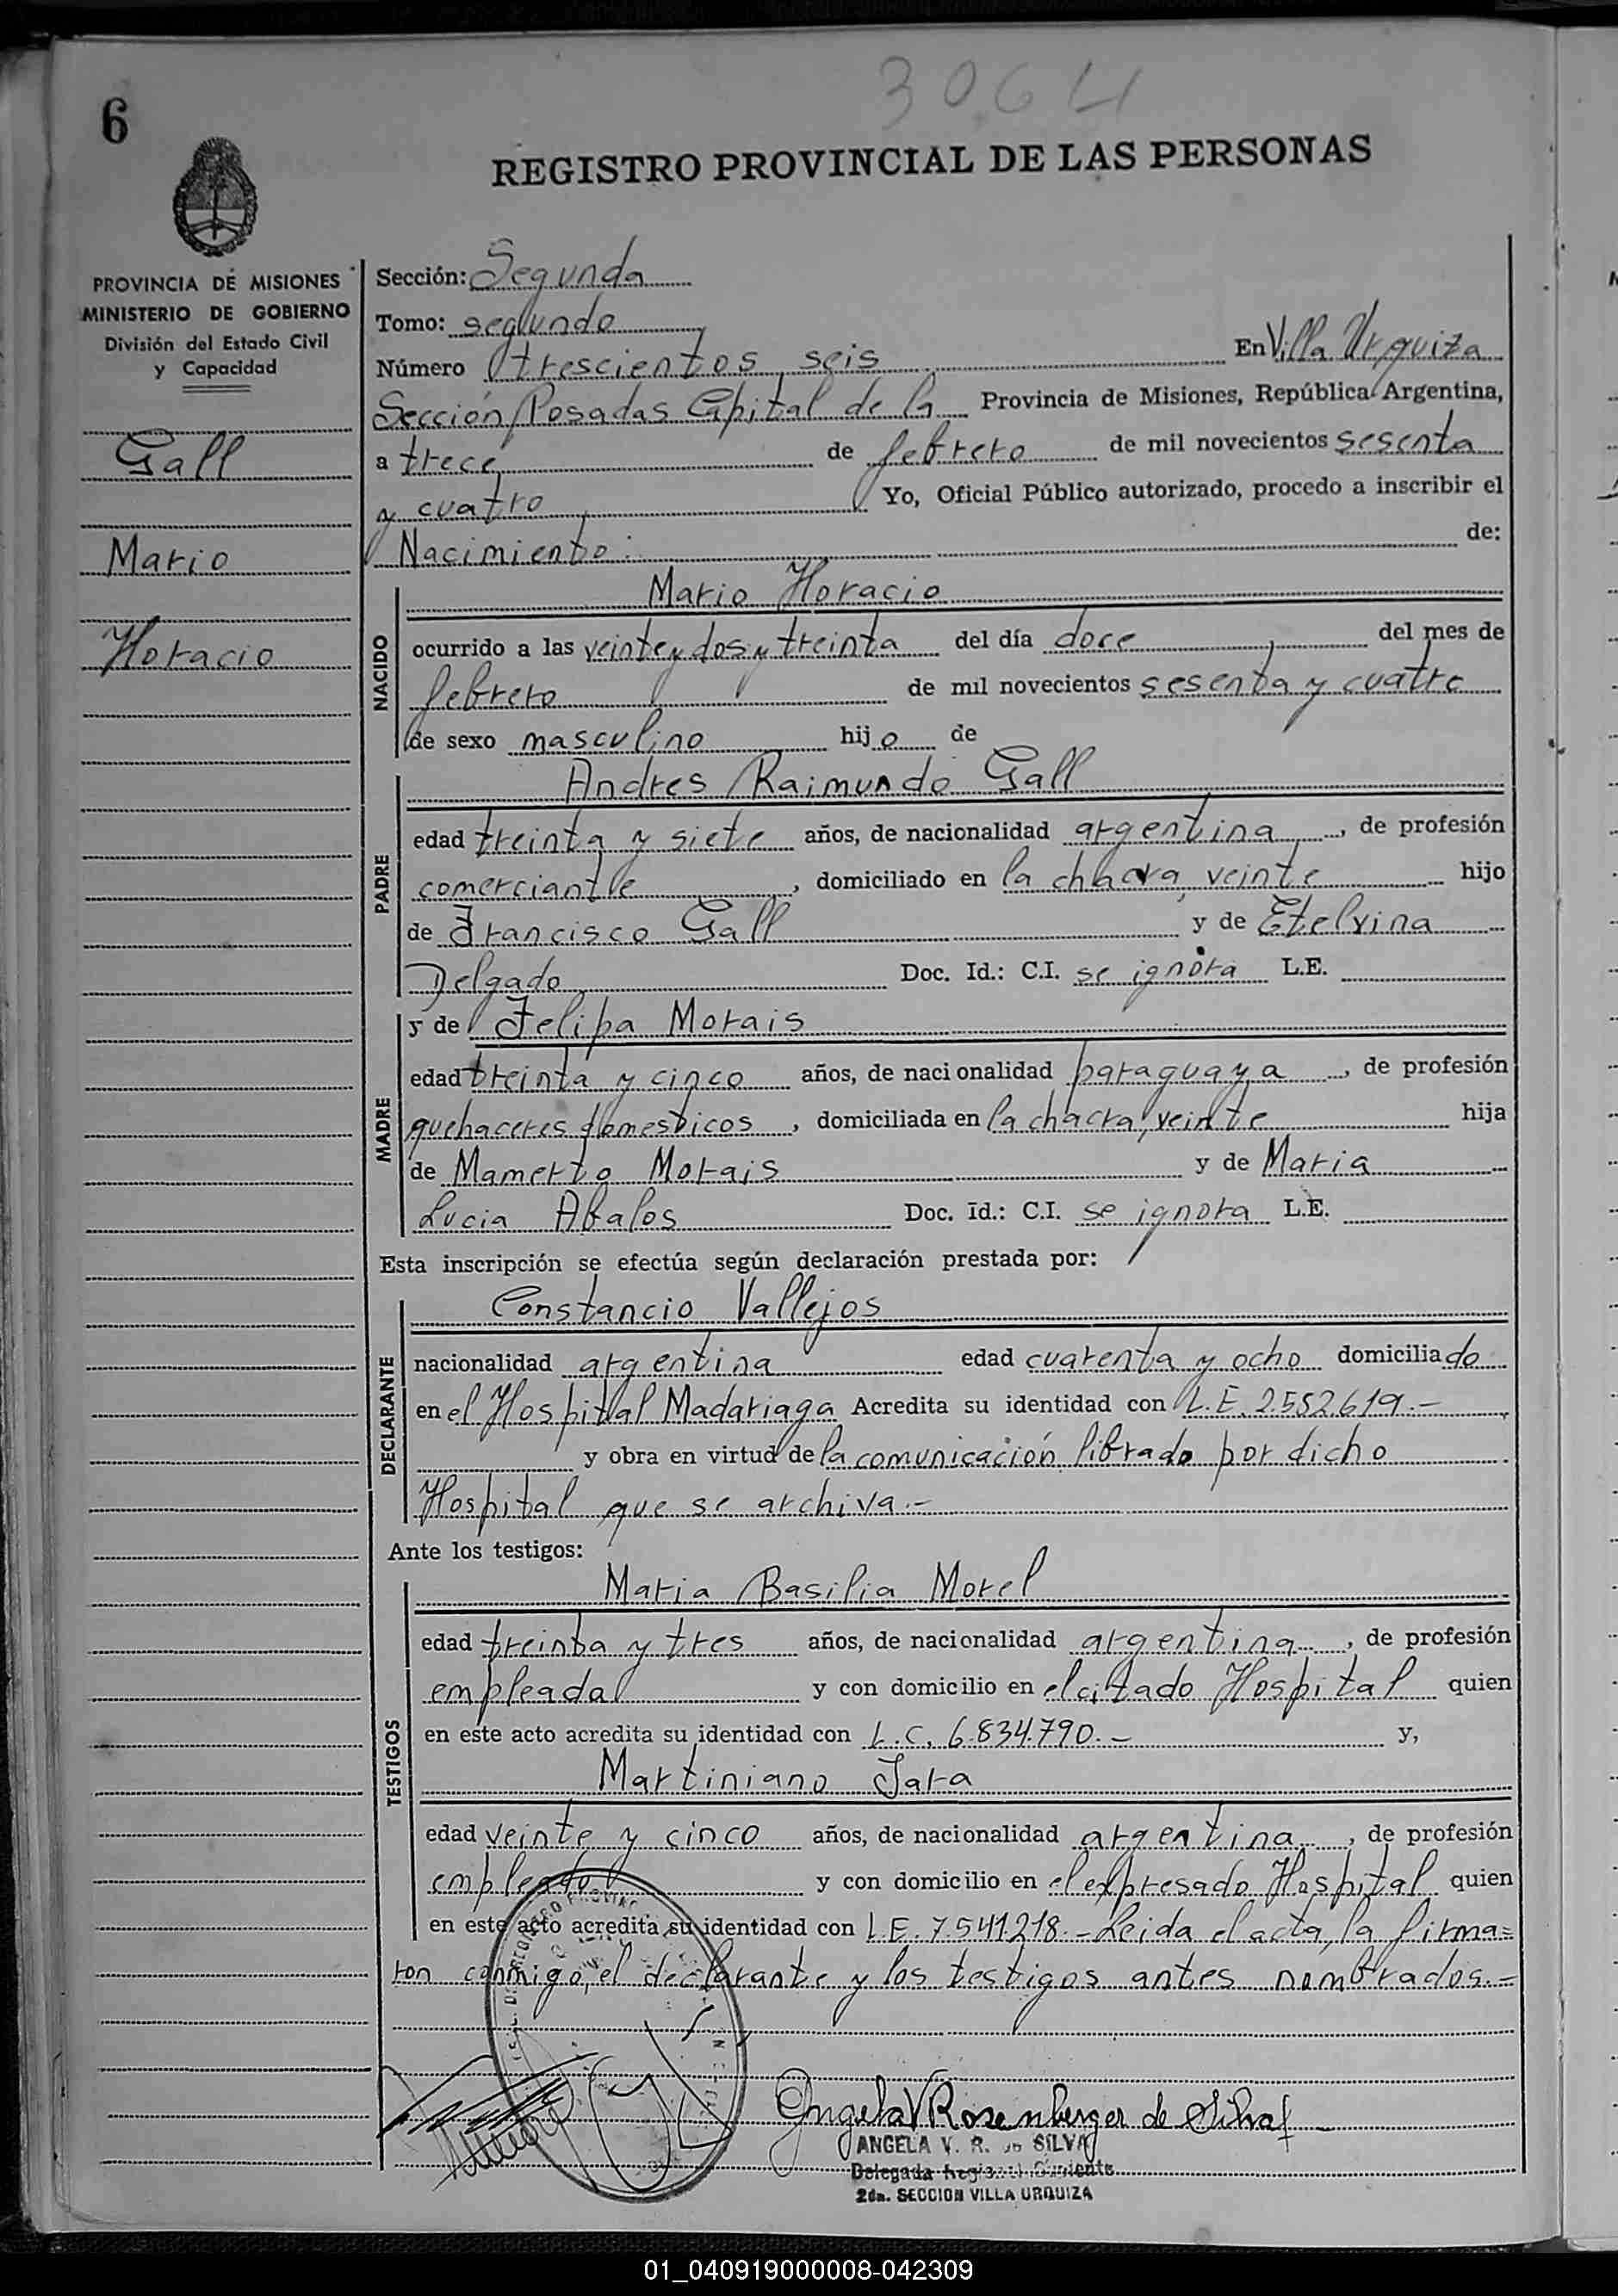 3064
6
REGISTRO PROVINCIAL DE LAS PERSONAS
PROVINCIA DE MISIONES
MINISTERIO DE GOBIERNO
División del Estado Civil
y Capacidad
Gall
Mario
Horacio
Sección: Segunda
Tomo: segundo
Número trescientos seis En Villa Urquiza
Sección Posadas Capital de la Provincia de Misiones, República Argentina,
a trece de febrero de mil novecientos sesenta
y cuatro Yo, Oficial Público autorizado, procedo a inscribir el
Nacimiento: de:
NACIDO
Mario Horacio
ocurrido a las veinte y dos y treinta del día doce del mes de
febrero de mil novecientos sesenta y cuatro
de sexo masculino hijo de
PADRE
Andres Raimundo Gall
edad treinta y siete años, de nacionalidad argentina, de profesión
comerciante, domiciliado en la chacra veinte hijo
de Francisco Gall y de Etelvina
Delgado Doc. Id.: C.I. se ignora L.E.
MADRE
y de Felipa Morais
edad treinta y cinco años, de nacionalidad paraguaya, de profesión
quehaceres domesticos, domiciliada en la chacra veinte hija
de Mamerto Morais y de Maria
Lucia Abalos Doc. Id.: C.I. se ignora L.E.
Esta inscripción se efectúa según declaración prestada por:
DECLARANTE
Constancio Vallejos
nacionalidad argentina edad cuarenta y ocho domiciliado
en el Hospital Madariaga Acredita su identidad con L.E. 2.552.619.-
y obra en virtud de la comunicación librado por dicho
Hospital que se archiva.-
Ante los testigos:
TESTIGOS
Maria Basilia Morel
edad treinta y tres años, de nacionalidad argentina, de profesión
empleada y con domicilio en el citado Hospital quien
en este acto acredita su identidad con L.C. 6.834.790.- y,
Martiniano Jara
edad veinte y cinco años, de nacionalidad argentina, de profesión
empleado y con domicilio en el expresado Hospital quien
en este acto acredita su identidad con L.E. 7.541.218.- Leida el acta, la firma=
ron conmigo, el declarante y los testigos antes nombrados.-
Angela V Rosenberger de Silva
ANGELA V. R. de SILVA
Delegada
2da. SECCION VILLA URQUIZA
01_040919000008-042309